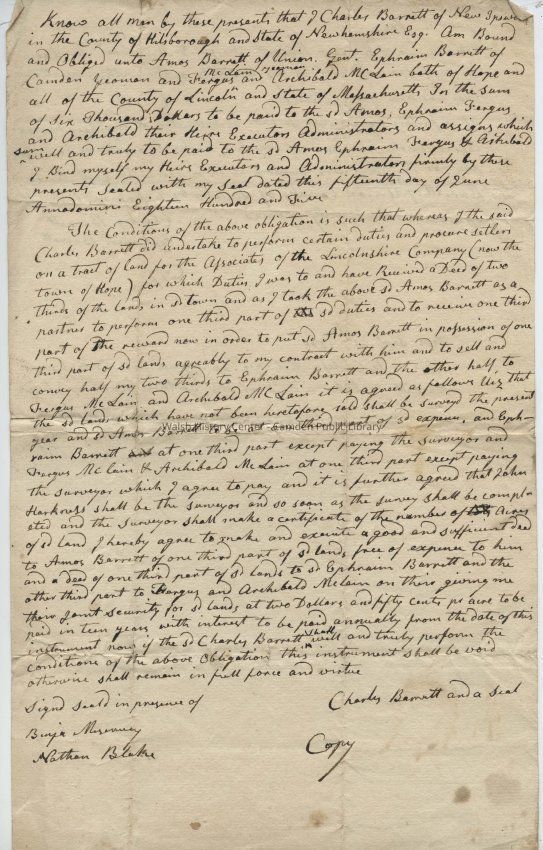 Know all men by these presents that I Charles Barrett of New Ipswich
in the County of Hilsborough and State of Newhamshire Esq. Am Bound
and Obliged unto Amos Barrett of Union. Gent. Ephraim Barrett of
Camden Yeoman and Fergus McLain yeoman and Archibald McLain both of Hope and
all of the County of Lincoln and State of Massachusetts In the sum
of Six Thousand Dollers to be paid to the sd Amos, Ephraim Fergus
and Archibald their Heirs Executors Administrators and assigns which
sum well and truly to be paid to the sd Amos Ephraim Fergus & Archibald
I Bind myself my Heirs Executors and Administrators firmly by these
presents Sealed with my Seal dated this fifteenth day of June
Annadomini Eighteen Hundred and Five
The Conditions of the above obligation is such that whereas I the said
Charles Barrett did undertake to perform certain duties and procure settlers
on a tract of land for the Associates of the Lincolnshire Company (now the
town of Hope) for which Duties I was to and have Received a Deed of two
thirds of the lands in sd town and as I took the above sd Amos Barrett as a
partner to perform one third part of sd duties and to receive one third
part of the reward now in order to put sd Amos Barrett in possession of one
third part of sd lands agreably to my contract with him and to sell and
convey half my two thirds to Ephraim Barrett and the other half to
Fergus McLain and Archibald McLain it is agreed as follows Viz that
the sd lands which have not been heretofore sold shall be surveyd the present
year and sd Amos Barrett to be of sd expence, and Eph-
raim Barrett at one third part except paying the Surveyor and
Fergus McLain & Archibald McLain at one third part except paying
the surveyor which I agree to pay and it is further agreed that John
Harkness shall be the surveyor and so soon as the survey shall be compl-
eted and the Surveyor shall make a certificate of the number of Acres
of sd land I hereby agree to make and execute a good and sufficient deed
to Amos Barrett of one third part of sd lands free of expence to him
and a deed of one third part of sd lands to sd Ephraim Barrett and the
other third part to Fergus and Archibald McLain on their giving me
there Joint Security for sd lands at two Dollars and fifty Cents pr acre to be
paid in ten years with interest to be paid annually from the date of this
instrument now if the sd Charles Barrett shall well and truly perform the
conditions of the above Obligation this instrument shall be void
otherwise shall remain in full force and virtue
Signd Seald in presence of
Charles Barrett and a Seal
Benja Meservey
Nathan Blake
Copy
Walsh History Center - Camden Public Library